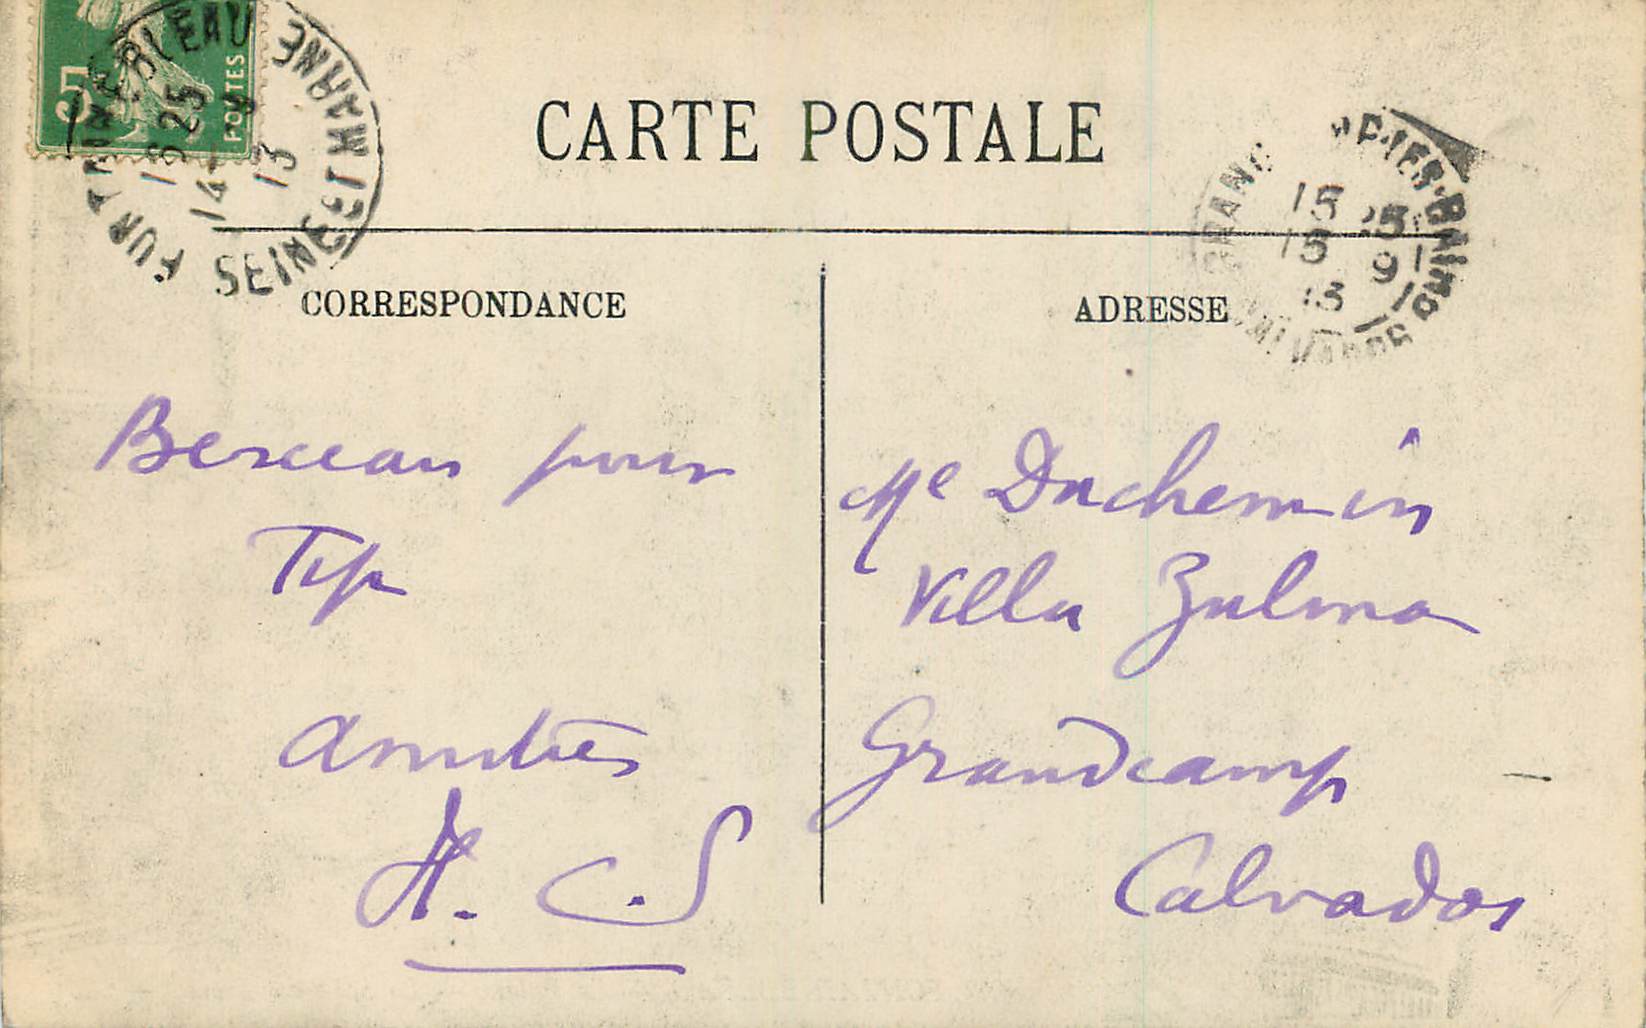 5
POSTES
FONTAINEBLEAU
SEINE ET MARNE
15 25
14 - 9
13
CARTE POSTALE
15 25
15 9
13
CALVADOS
CORRESPONDANCE
ADRESSE
Berceau pour
Tip
Amitiés
H. C. S
Me Duchemin
Villa Zulma
Grandcamp
Calvados